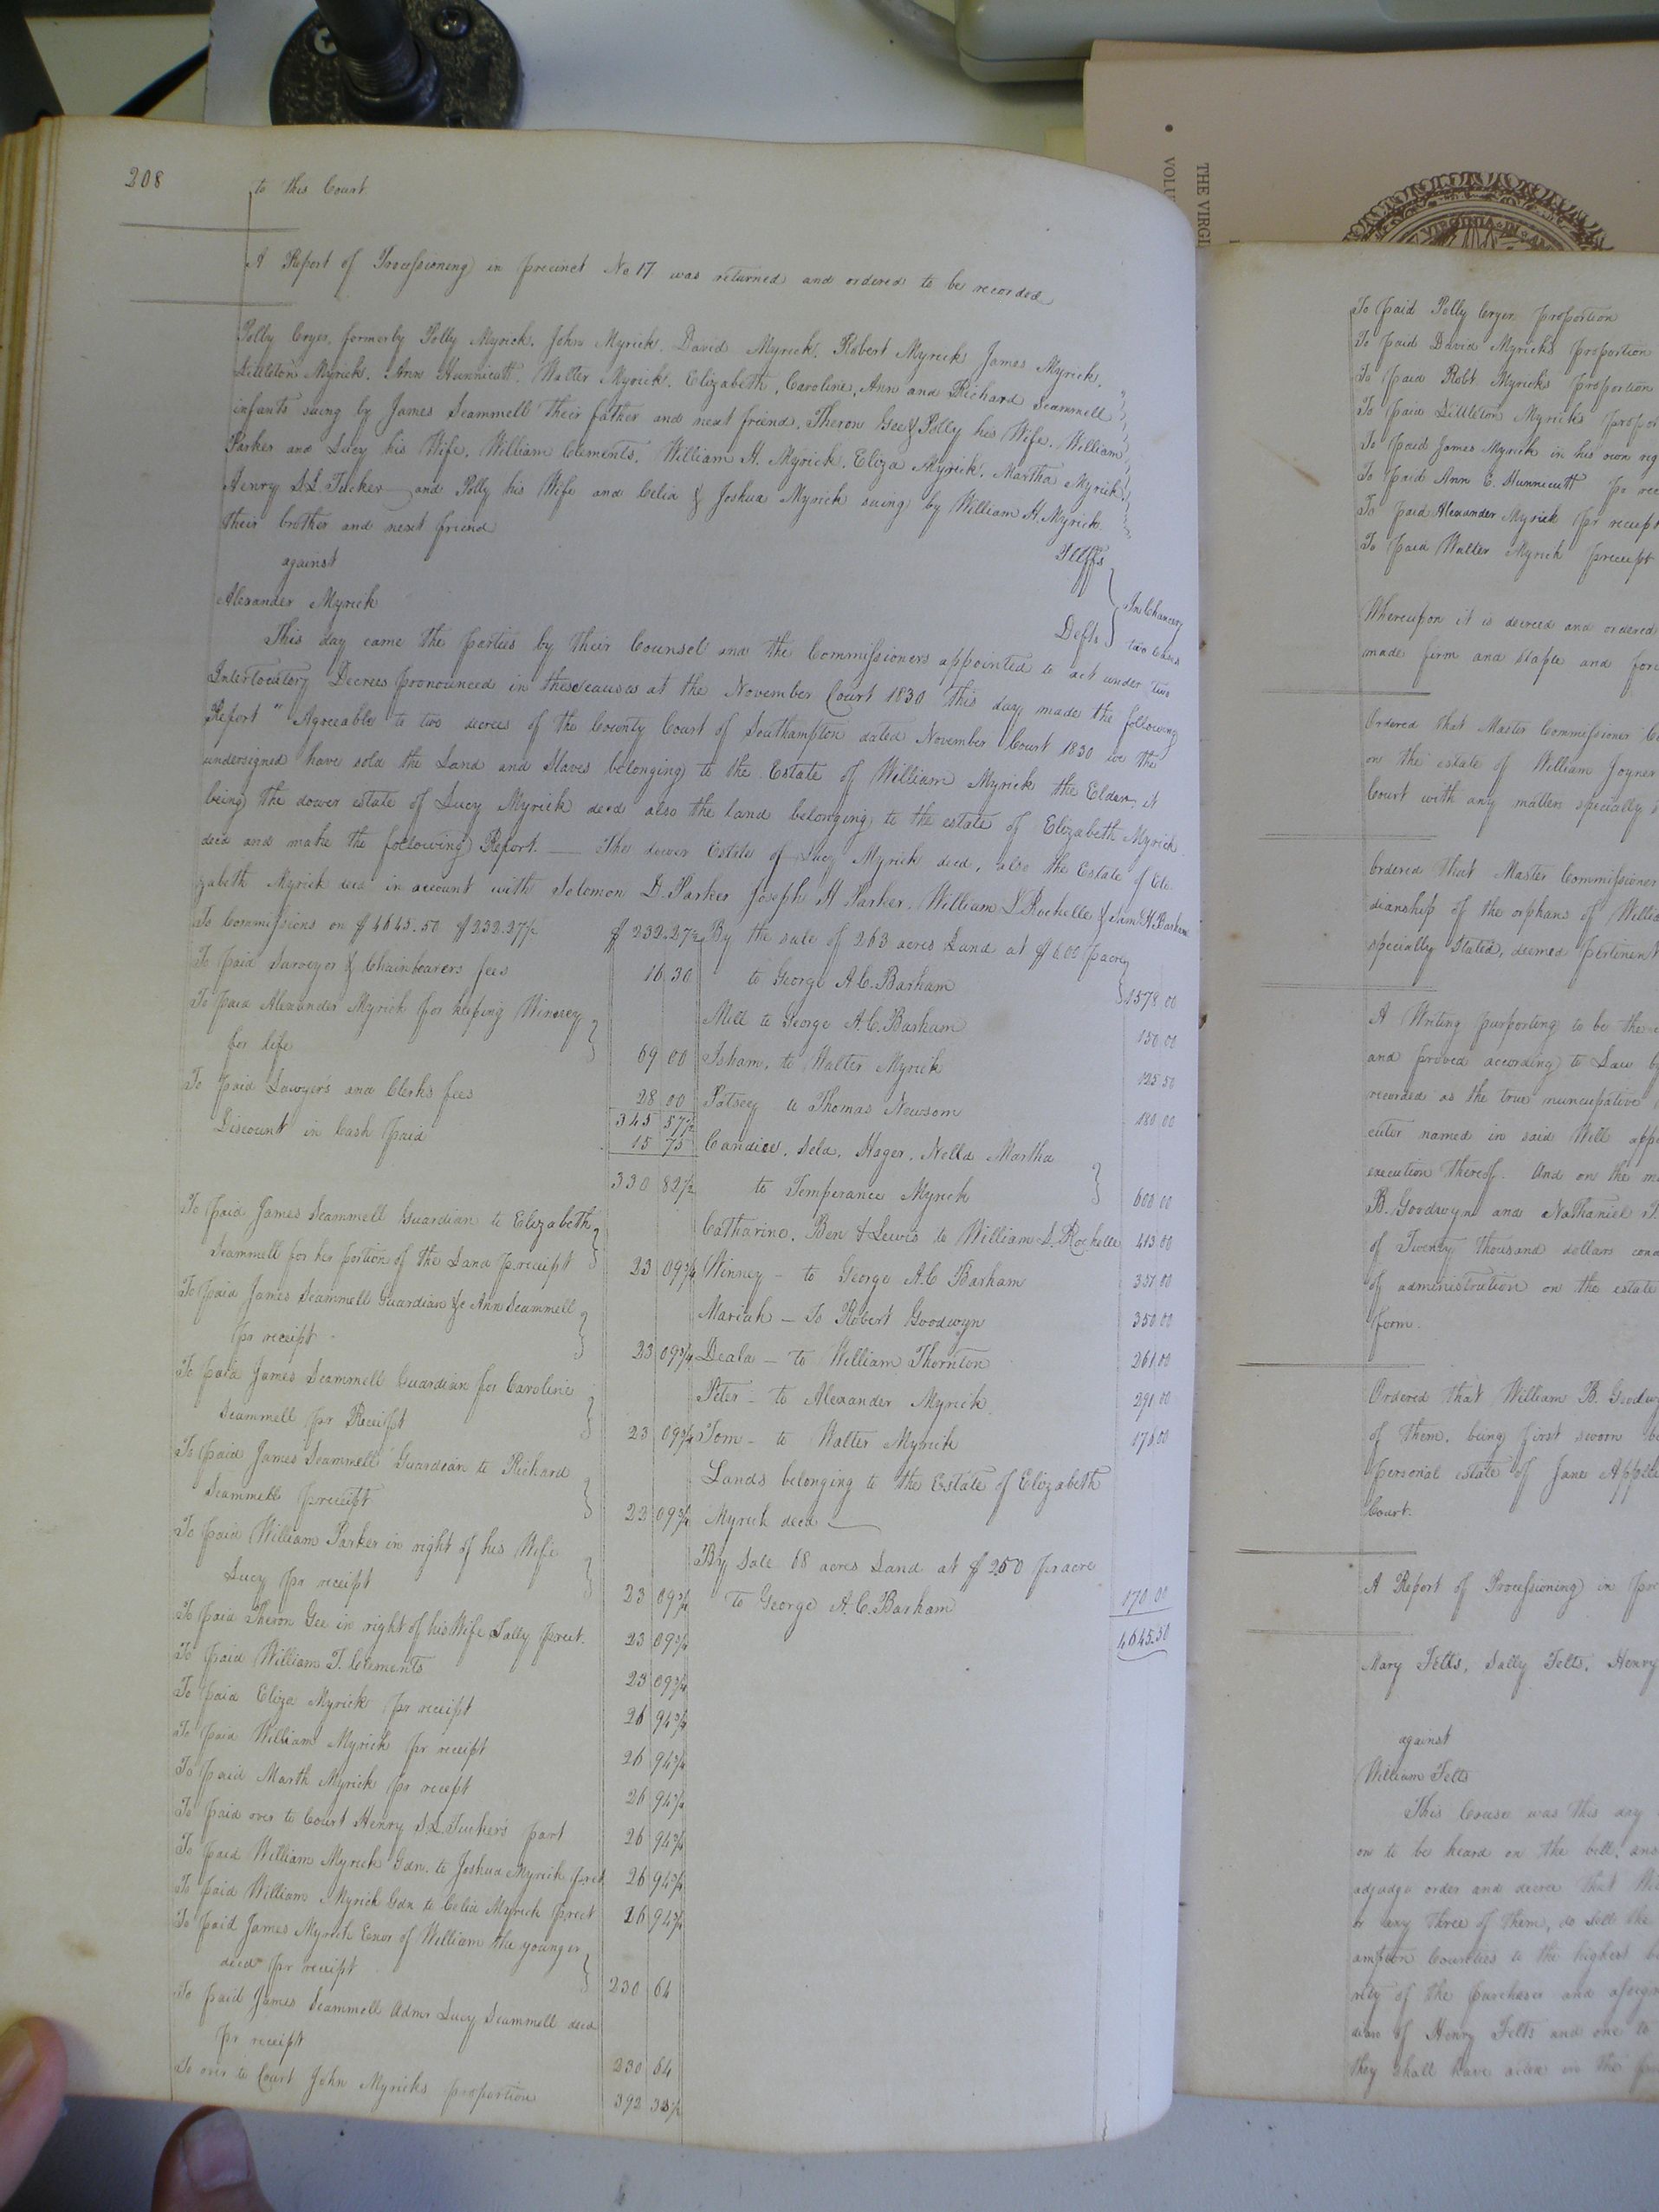 208
to this Court.
A Report of Processioning in precinct No 17 was returned and ordered to be recorded
Polly Cryer, formerly Polly Myrick, John Myrick, David Myrick, Robert Myrick James Myrick,
Littleton Myrick, Ann Hunnicutt, Walter Myrick, Elizabeth, Caroline, Ann and Richard Scammell
infants suing by James Scammell their father and next friend, Theron Gee & Polly his Wife, William
Parker and Lucy his Wife, William Clements, William H. Myrick, Eliza Myrick, Martha Myrick
Henry S.L. Tucker and Polly his Wife and Celia & Joshua Myrick suing by William H. Myrick
their brother and next friend
Pltffs
against
In Chancery
Alexander Myrick
Defts.
two cases
This day came the parties by their Counsel and the Commissioners appointed to act under two
Interlocutory Decrees pronounced in these causes at the November Court 1830 this day made the following
Report " Agreeable to two decrees of the County Court of Southampton dated November Court 1830 we the
undersigned have sold the Land and Slaves belonging to the Estate of William Myrick the Elder, it
being the dower estate of Lucy Myrick decd also the land belonging to the estate of Elizabeth Myrick
decd and make the following Report. — The dower Estate of Lucy Myrick decd, also the Estate of Eli-
zabeth Myrick decd in account with Solomon D. Parker Joseph H Parker, William S. Rochelle & Saml H. Barham
To Commissions on $4645.50 $232.27½ $232.27½
To paid Surveyor & Chainbearers fees 16 30
To paid Alexander Myrick for keeping Winney
for life 69 00
To paid Lawyers and Clerks fees 28 00
345 57½
Discount in Cash paid 15 75
330 82½
To paid James Scammell Guardian to Elizabeth
Scammell for her portion of the Land pr receipt 23 09¾
To paid James Scammell Guardian &c Ann Scammell
pr receipt 23 09¾
To paid James Scammell Guardian for Caroline
Scammell pr Receipt 23 09¾
To paid James Scammell Guardian to Richard
Scammell pr receipt 23 09¾
To paid William Parker in right of his Wife
Lucy pr receipt 23 09¾
To paid Theron Gee in right of his Wife Sally prect. 23 09¾
To paid William T. Clements 23 09¾
To paid Eliza Myrick pr receipt 26 94¾
To paid William Myrick pr receipt 26 94¾
To paid Marth Myrick pr receipt 26 94¾
To paid over to Court Henry S.L. Tucker's part 26 94¾
To paid William Myrick Gdn. to Joshua Myrick prect 26 94¾
To paid William Myrick Gdn to Celia Myrick prect 26 94¾
To paid James Myrick Exor of William the younger
decd pr receipt 230 64
To paid James Scammell Admr Lucy Scammell decd
pr receipt 230 64
To over to Court John Myricks proportion 392 33½
By the sale of 263 acres Land at $6.00 p acre
to George A.C. Barham 1578 00
Mill to George A.C. Barham 150 00
Isham, to Walter Myrick 125 50
Patsey to Thomas Newsom 180 00
Candice, Sela, Hager, Nella Martha
to Temperance Myrick 600 00
Catharine, Ben & Lewis to William S. Rochelle 413 00
Winney - to George A.C Barham 351 00
Mariah - To Robert Goodwyn 350 00
Deala - to William Thornton 261 00
Peter - to Alexander Myrick 291 00
Tom - to Walter Myrick 176 00
Lands belonging to the Estate of Elizabeth
Myrick decd
By Sale 68 acres Land at $2.50 pr acre
to George A.C. Barham 170 00
4645.50
THE VIRGI
VOLU
VIRGINIA
To paid Polly Cryer proportion
To paid David Myricks proportion
To paid Robt Myricks proportion
To paid Littleton Myricks propor
To paid James Myrick in his own rig
To paid Ann E. Hunnicutt pr rec
To paid Alexander Myrick pr receipt
To paid Walter Myrick pr receipt
Whereupon it is decreed and ordered
made firm and stable and fore
Ordered that Master Commissioner
on the estate of William Joyner
Court with any matters specially
Ordered that Master Commissioner
dianship of the orphans of Willia
specially stated, deemed pertinent
A Writing purporting to be the
and proved according to Law by
recorded as the true nuncupative
cutor named in said Will app
execution thereof. And on the m
B. Goodwyn and Nathaniel
of Twenty thousand dollars cond
of administration on the estate
form.
Ordered that William B. Goodwy
of them, being first sworn be
personal estate of Jane Apple
Court.
A Report of Processioning in pre
Mary Felts, Sally Felts, Henry
against
William Felts
This Cause was this day
on to be heard on the bill, ans
adjudge order and decree that
or any three of them, do sell the
ampton Counties to the highest b
rity of the purchaser and assign
of Henry Felts and one to
they shall have acted in the pre